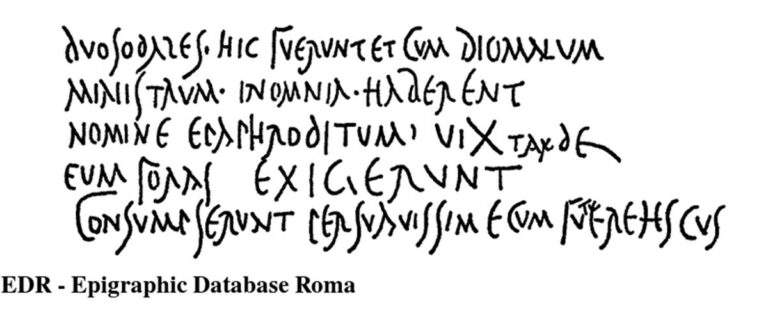 DVOSODALES· HIC FVERVNT ET CVM DIOMALVM
MINISTRVM· INOMNIA· HABERENT
NOMINE EPAPHRODITVM' VIX TARDE
EVM FORAS EXIGERVNT
CONSVMPSERVNT PERSVAVISSIME CVM FVTVERE HS CVS
EDR - Epigraphic Database Roma